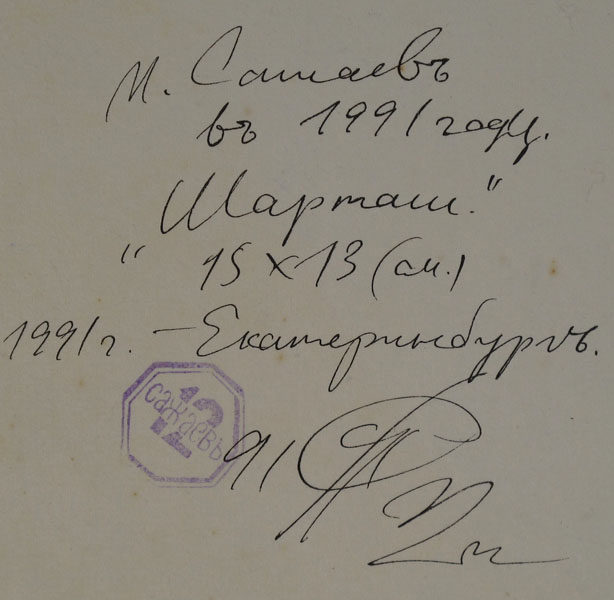 М. Сажаевъ
въ 1991 году.
„Шарташ."
15 x 13 (см.)
1991 г. — Екатеринбургъ.
сажаевъ
12
91